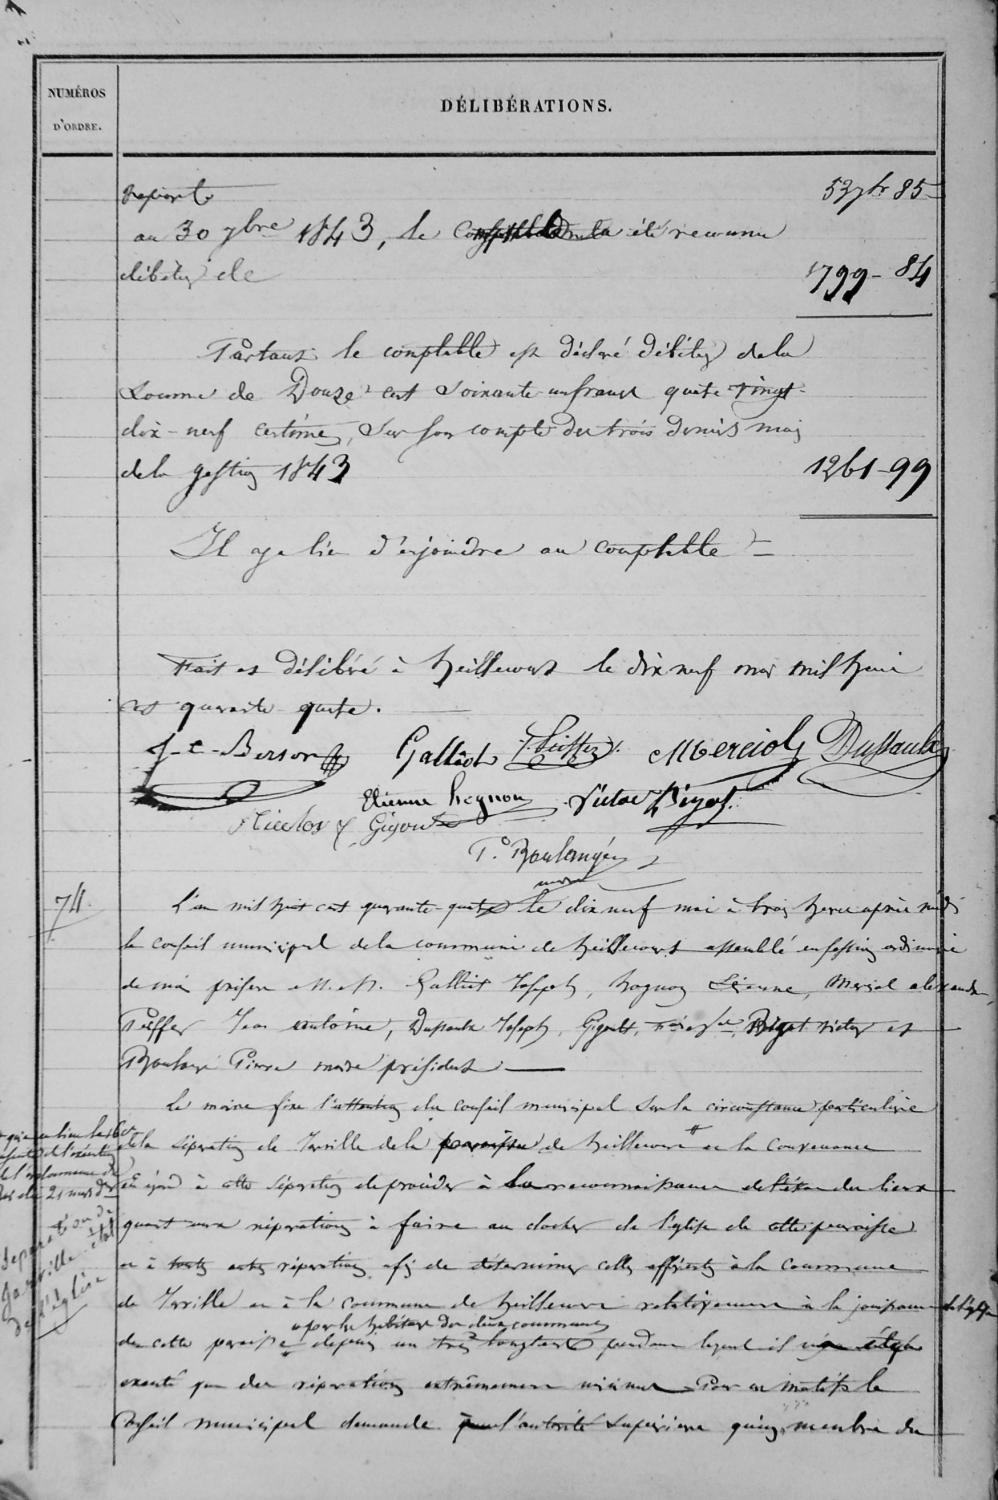 NUMÉROS
D'ORDRE.
DÉLIBÉRATIONS.
Report 537fr 85
au 30 9bre 1843, le été reconnu
débiteur de 1799-84
Partant le comptable est déclaré débiteur de la
Somme de Douze cent Soixante un francs quatre vingt
dix-neuf centimes, Sur son compte des trois derniers mois
de la gestion 1843 1261-99
Il y a lieu d'enjoindre au comptable
Fait et délibéré à heillecourt le dix neuf mai mil huit
cet quarante quatre.
J-C-Berson Galliot Pfeiffer Merciol Dussaulx
Etienne hognon Victor Bigot
Nicolas Gigout
P. Boulanger
maire
74. L'an mil huit cent quarante-quatre le dix neuf mai à trois heures après midi
le conseil municipal de la commune de heillecourt assemblé en session ordinaire
de mai présens M.M. Galliot Joseph, hognon Etienne, Merciol alexandre,
Pfeffer Jean antoine, Dussaulx Joseph, Gigout, Bigot victor et
Boulanger Pierre maire président
Le maire fixe l'attention du conseil municipal Sur la circonstance particulière
de la séparation de Jarville de la paroisse de heillecourt et la convenance
eu égard à cette séparation de procéder à la reconnaissance de l'état des lieux
quant aux réparations à faire au clocher de l'église de cette paroisse
et à toutes autres réparations afin de déterminer celles afférentes à la commune
de Jarville et à la commune de heillecourt relativement à la jouissance de l'église
de cette paroisse depuis un très longtems pendant lequel il n'a été
par les habitans des deux communes
exécuté que des réparations extrêmement minimes Par ces motifs le
Conseil municipal demande à l'autorité Supérieure qu'un membre du
de l'ordonnance du
21 mars
Séparation de
Jarville état
de l'église